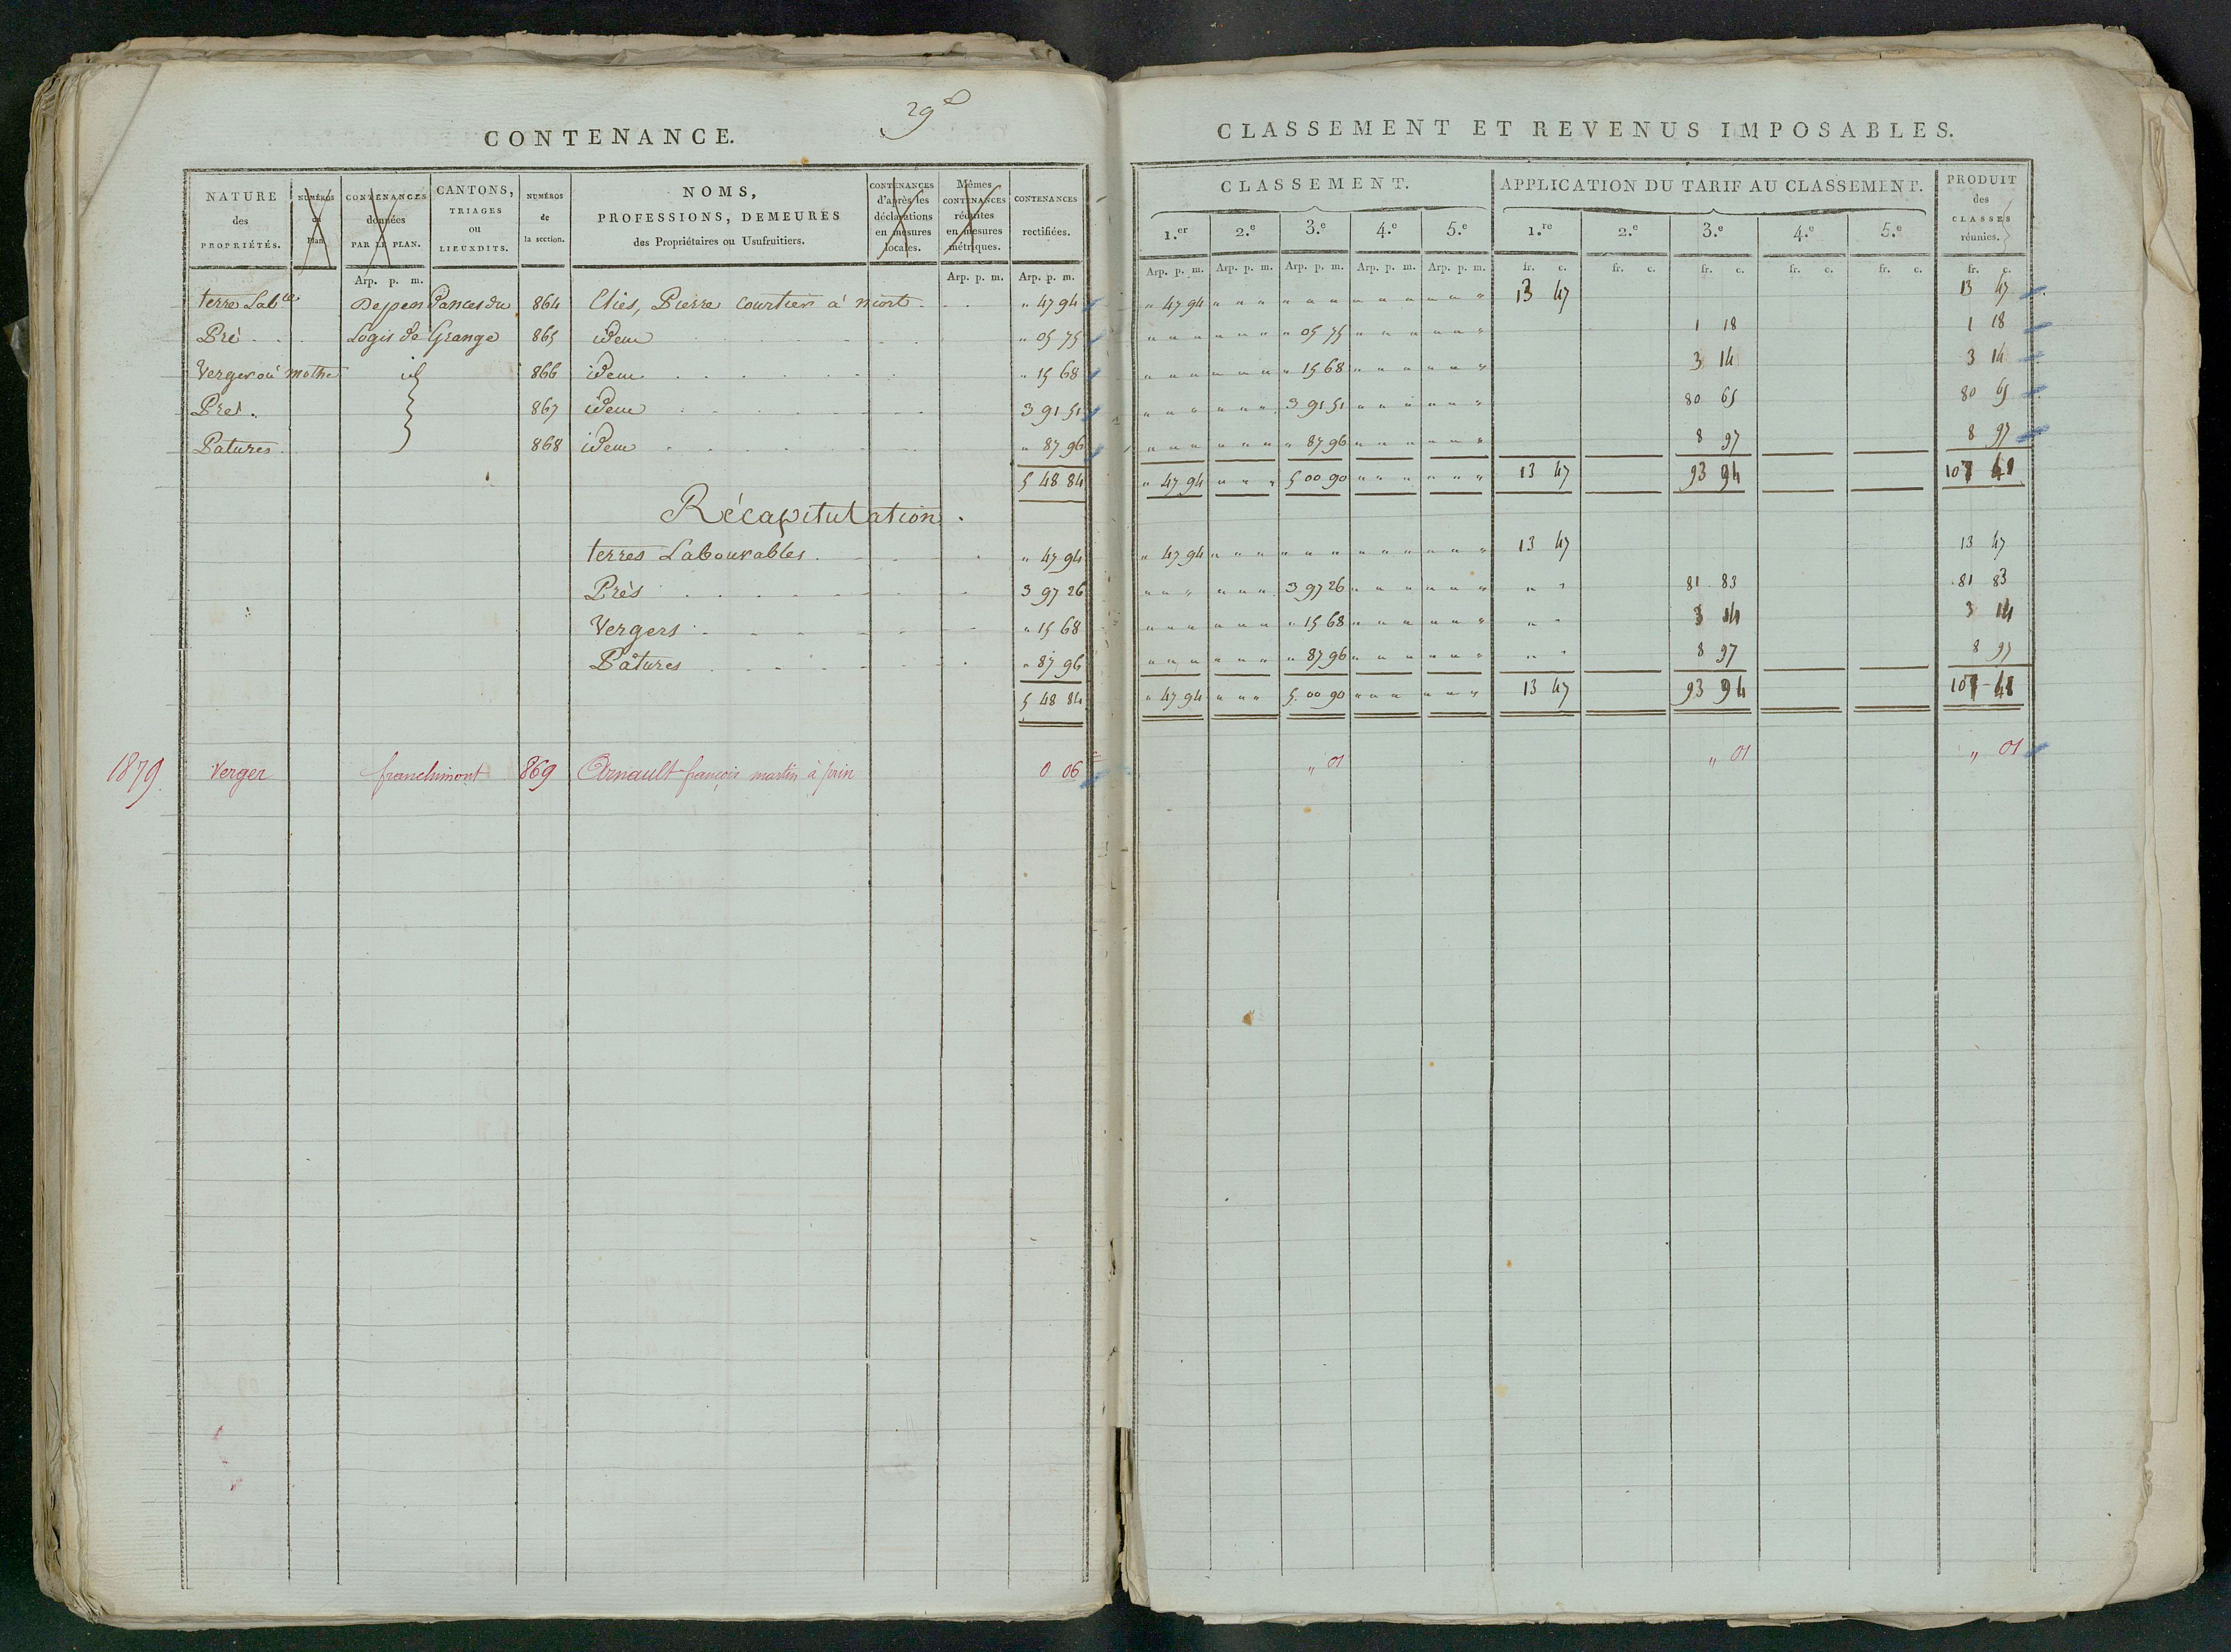 29e
CONTENANCE.
NATURE des PROPRIÉTÉS. | NUMÉROS du Plan. | CONTENANCES données PAR LE PLAN. | CANTONS, TRIAGES ou LIEUXDITS. | NUMÉROS de la section. | NOMS, PROFESSIONS, DEMEURES des Propriétaires ou Usufruitiers. | CONTENANCES d'après les déclarations en mesures locales. | Mêmes CONTENANCES réduites en mesures métriques. | CONTENANCES rectifiées.
Arp. p. m. | Arp. p. m. | Arp. p. m.
terre Lable | Dependances du | 864 | Clies, Pierre Courtier à niort | " 47 94
Pré | Logis de Grange | 865 | idem | " 05 75
Verger où mothe | id | 866 | idem | " 15 68
Prés. | 867 | idem | 3 91 51
Patures | 868 | idem | " 87 96
5 48 84
Récapitulation.
terres Labourables | " 47 94
Prés | 3 97 26
Vergers | " 15 68
Pâtures | " 87 96
5 48 84
1879 | Verger | franchimont | 869 | Arnault françois martin à prin | 0 06
CLASSEMENT ET REVENUS IMPOSABLES.
CLASSEMENT. | APPLICATION DU TARIF AU CLASSEMENT. | PRODUIT des CLASSES réunies.
1.er | 2.e | 3.e | 4.e | 5.e | 1.re | 2.e | 3.e | 4.e | 5.e
Arp. p. m. | Arp. p. m. | Arp. p. m. | Arp. p. m. | Arp. p. m. | fr. c. | fr. c. | fr. c. | fr. c. | fr. c. | fr. c.
" 47 94 | " " " | " " " | " " " | " " " | 13 47 | 13 47
" " " | " " " | " 05 75 | " " " | " " " | 1 18 | 1 18
" " " | " " " | " 15 68 | " " " | " " " | 3 14 | 3 14
" " " | " " " | 3 91 51 | " " " | " " " | 80 65 | 80 65
" " " | " " " | " 87 96 | " " " | " " " | 8 97 | 8 97
" 47 94 | " " " | 5 00 90 | " " " | " " " | 13 47 | 93 94 | 107 41
" 47 94 | " " " | " " " | " " " | " " " | 13 47 | 13 47
" " " | " " " | 3 97 26 | " " " | " " " | " " | 81 83 | 81 83
" " " | " " " | " 15 68 | " " " | " " " | " " | 3 14 | 3 14
" " " | " " " | " 87 96 | " " " | " " " | " " | 8 97 | 8 97
" 47 94 | " " " | 5 00 90 | " " " | " " " | 13 47 | 93 94 | 107 41
" 01 | " 01 | " 01